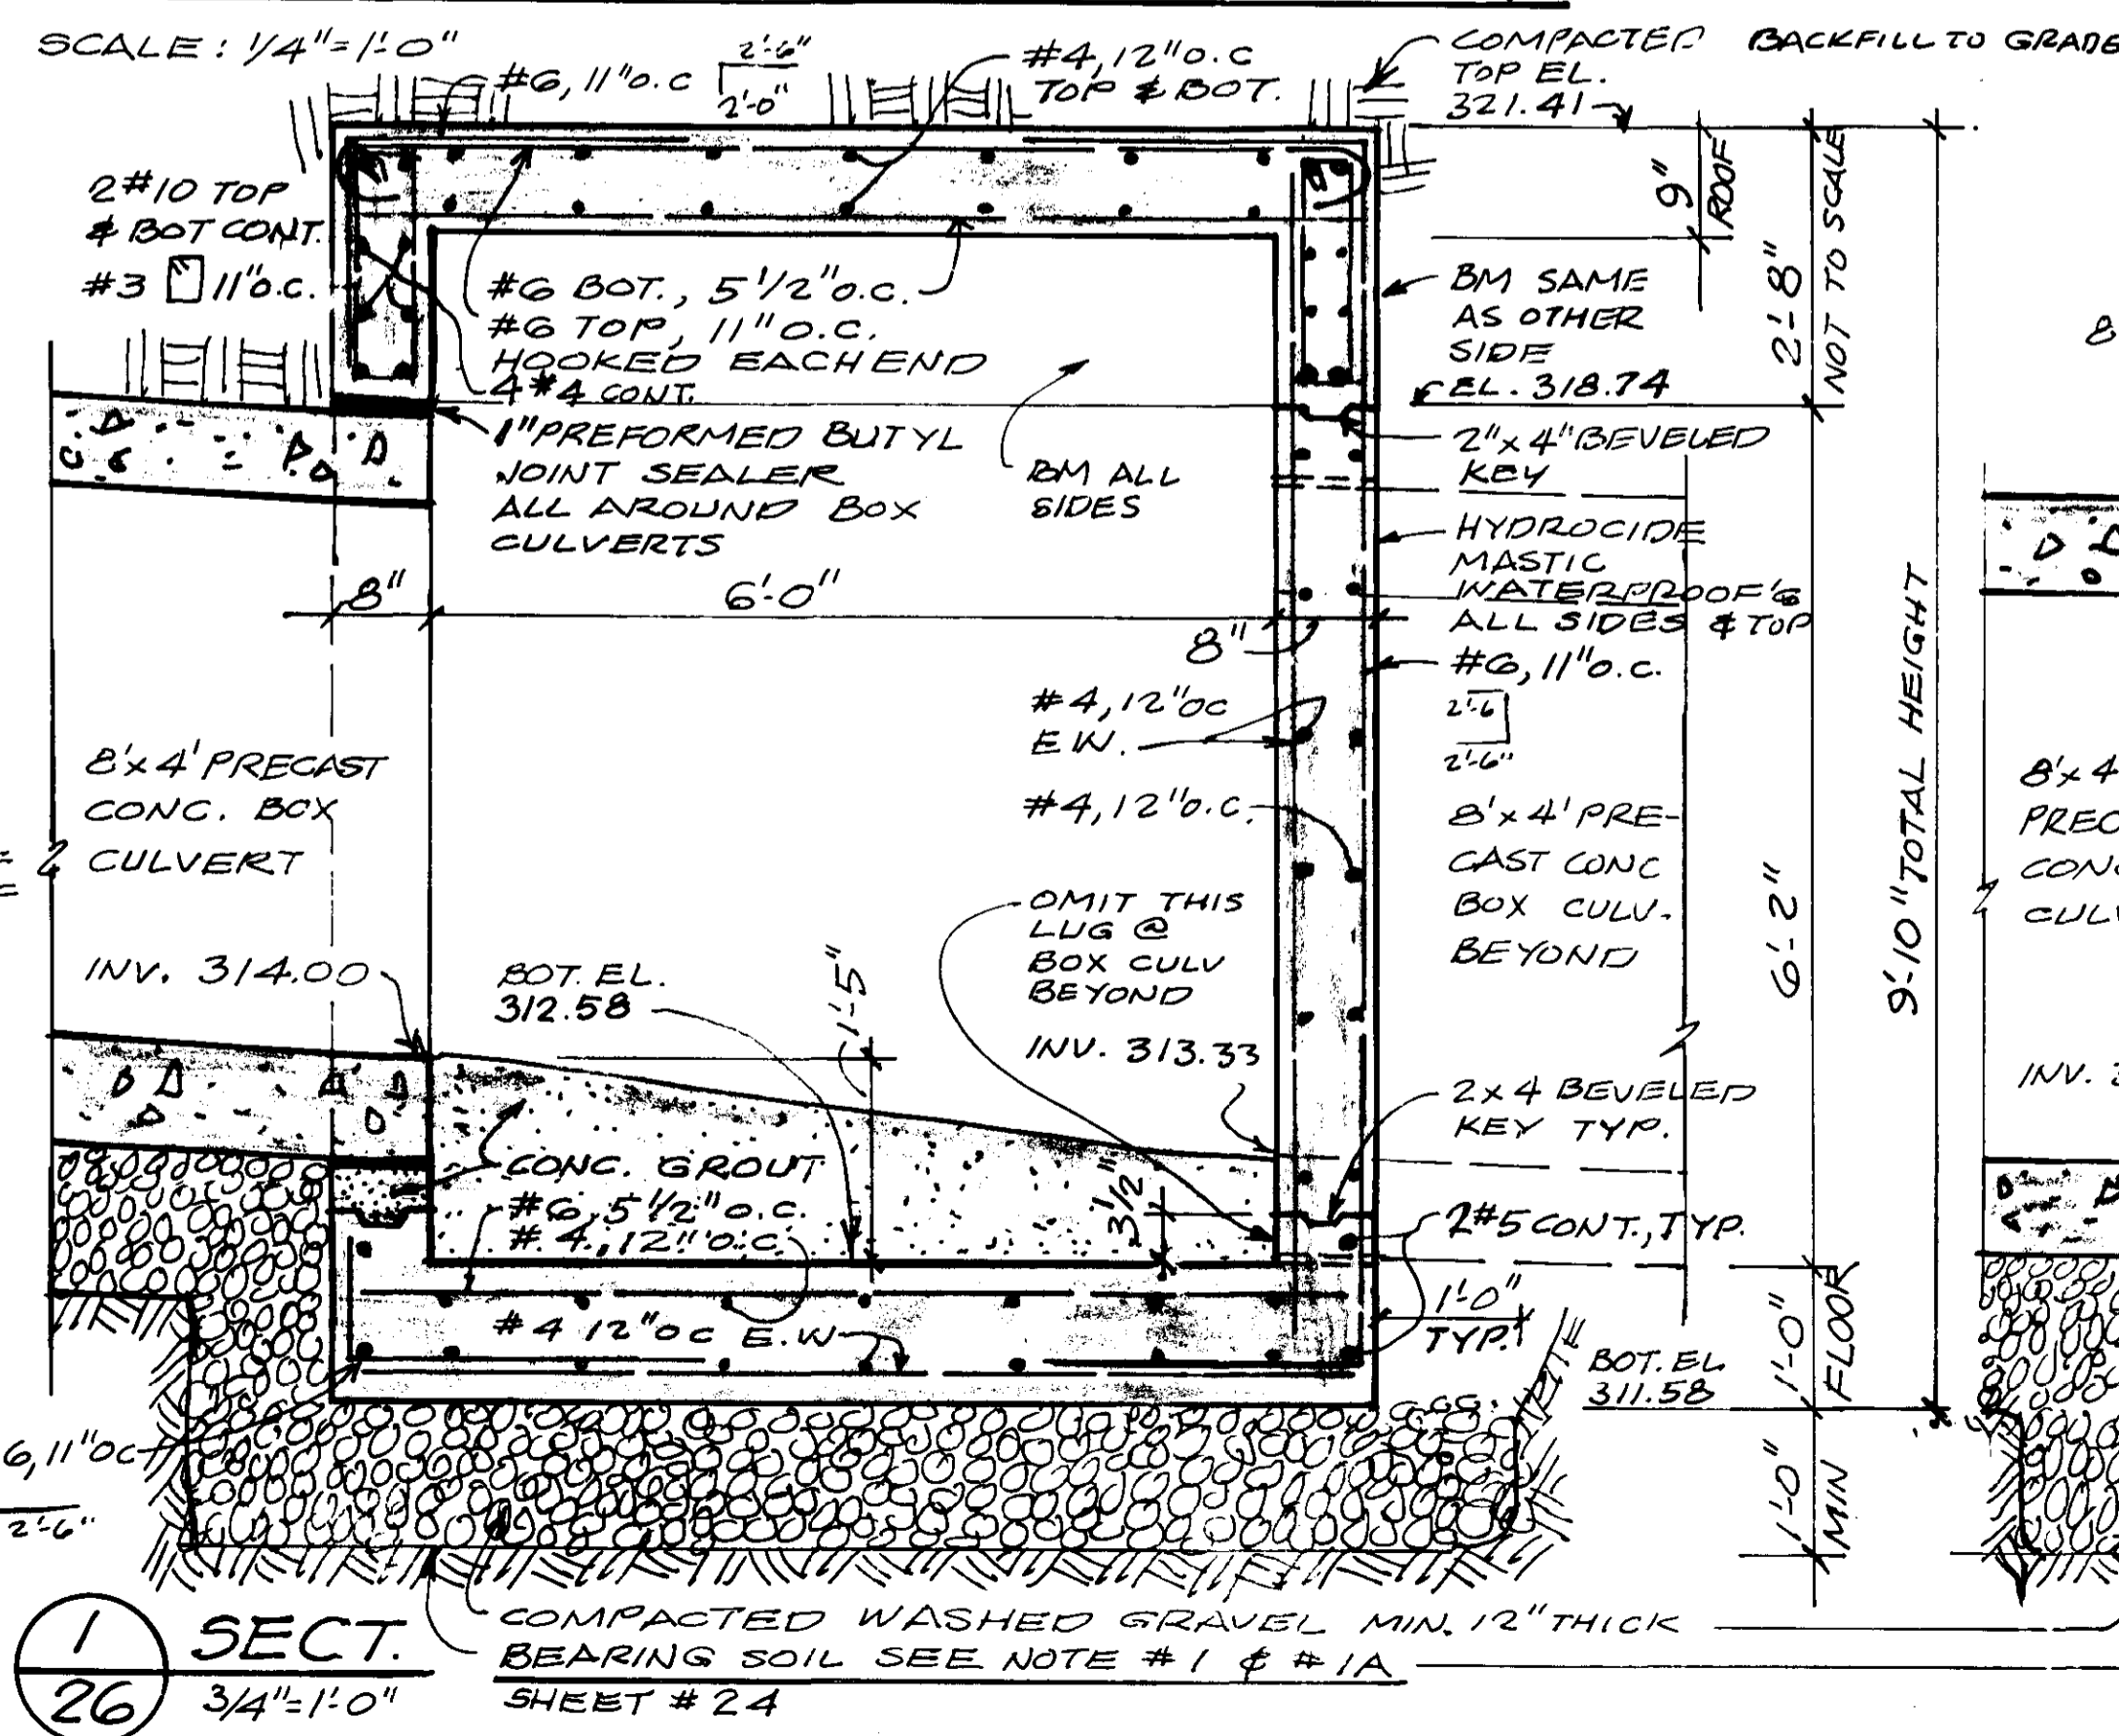 SCALE: 1/4"=1'-0"
#6, 11"O.C
2'-6"
2'-0"
#4, 12"O.C
TOP & BOT.
COMPACTED BACKFILL TO GRADE
TOP EL.
321.41
2#10 TOP
& BOT CONT.
#3 11"O.C.
#6 BOT., 5 1/2"O.C.
#6 TOP, 11"O.C.
HOOKED EACH END
4#4 CONT.
1"PREFORMED BUTYL
JOINT SEALER
ALL AROUND BOX
CULVERTS
BM ALL
SIDES
9"
ROOF
2'-8"
NOT TO SCALE
BM SAME
AS OTHER
SIDE
EL. 318.74
2"x4"BEVELED
KEY
HYDROCIDE
MASTIC
WATERPROOF'G
ALL SIDES & TOP
#6, 11"O.C.
2'-6
2'-6"
8"
6'-0"
8"
#4, 12"OC
E.W.
#4, 12"O.C.
8'x4' PRECAST
CONC. BOX
CULVERT
8'x4' PRE-
CAST CONC
BOX CULV.
BEYOND
OMIT THIS
LUG @
BOX CULV
BEYOND
INV. 314.00
BOT. EL.
312.58
1'-5"
INV. 313.33
6'-2"
9'-10" TOTAL HEIGHT
2x4 BEVELED
KEY TYP.
CONC. GROUT
#6, 5 1/2"O.C.
#4, 12"O.C.
3 1/2"
2#5 CONT., TYP.
#4 12"OC E.W
1'-0"
TYP.
BOT. EL
311.58
1'-0"
FLOOR
1'-0"
MIN
6, 11"OC
2'-6"
8
8'x4
PREC
CONC
CULV
INV.
1
26
SECT.
3/4"=1'-0"
COMPACTED WASHED GRAVEL MIN. 12"THICK
BEARING SOIL SEE NOTE #1 & #1A
SHEET #24